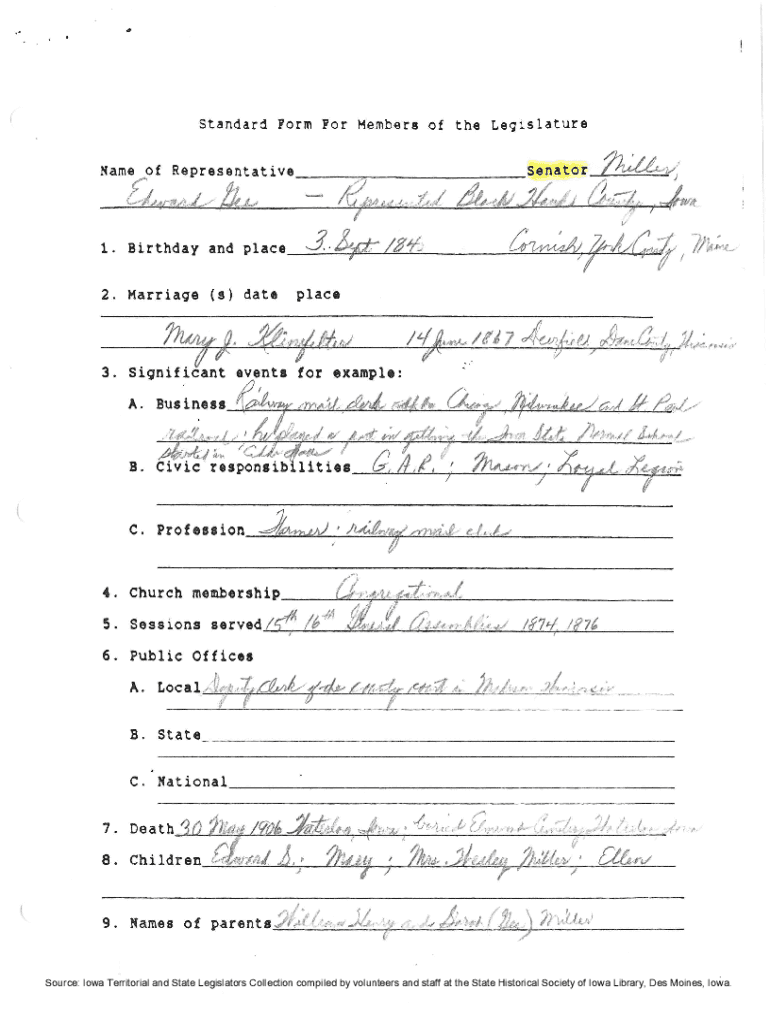 Standard Form For Members of the Legislature
Name of Representative Senator Miller,
Edward Gee — Represented Black Hawk County, Iowa
1. Birthday and place 3 Sept 184 Cornish, York County, Maine
2. Marriage (s) date place
Mary J. Klinefelter 14 June 1867 Deerfield, Dane County, Wisconsin
3. Significant events for example:
A. Business Railway mail clerk with the Chicago, Milwaukee and St Paul
railroad; he played a part in getting the Iowa State Normal School
started in Cedar Falls
B. Civic responsibilities G.A.R.; Mason; Loyal Legion
C. Profession Farmer; railway mail clerk
4. Church membership Congregational
5. Sessions served 15th, 16th General Assemblies 1874, 1876
6. Public Offices
A. Local Deputy Clerk of the county court in Madison Wisconsin
B. State
C. National
7. Death 30 May 1906 Waterloo, Iowa; buried Elmwood Cemetery, Waterloo Iowa
8. Children Edward S.; Mary; Mrs. Wesley Miller; Ellen
9. Names of parents William Henry and Sarah (Gee) Miller
Source: Iowa Territorial and State Legislators Collection compiled by volunteers and staff at the State Historical Society of Iowa Library, Des Moines, Iowa.